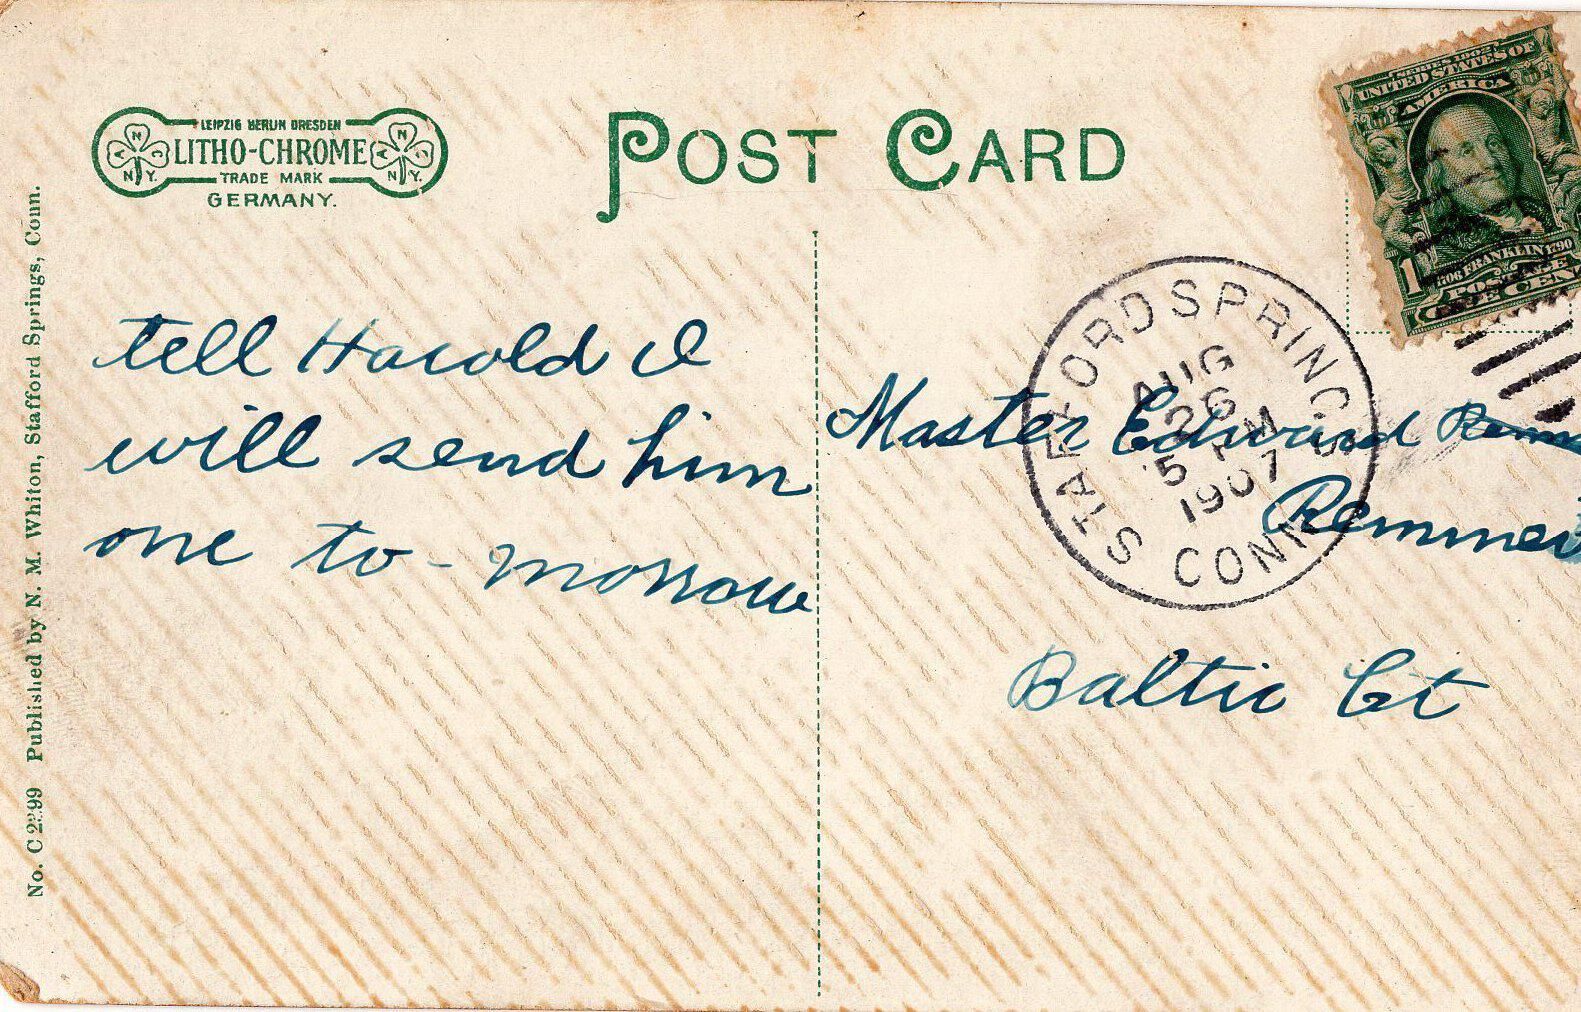 LEIPZIG BERLIN DRESDEN
LITHO-CHROME
TRADE MARK
GERMANY.
N
A
C
N
Y.
POST CARD
SERIES 1902
UNITED STATES OF
AMERICA
1706 FRANKLIN 1790
POSTAGE
1
ONE CENT
STAFFORD SPRINGS
CONN
AUG
26
5 PM
1907
tell Harold I
will send him
one to-morrow
Master Edward
Baltic Ct
Published by N. M. Whiton, Stafford Springs, Conn.